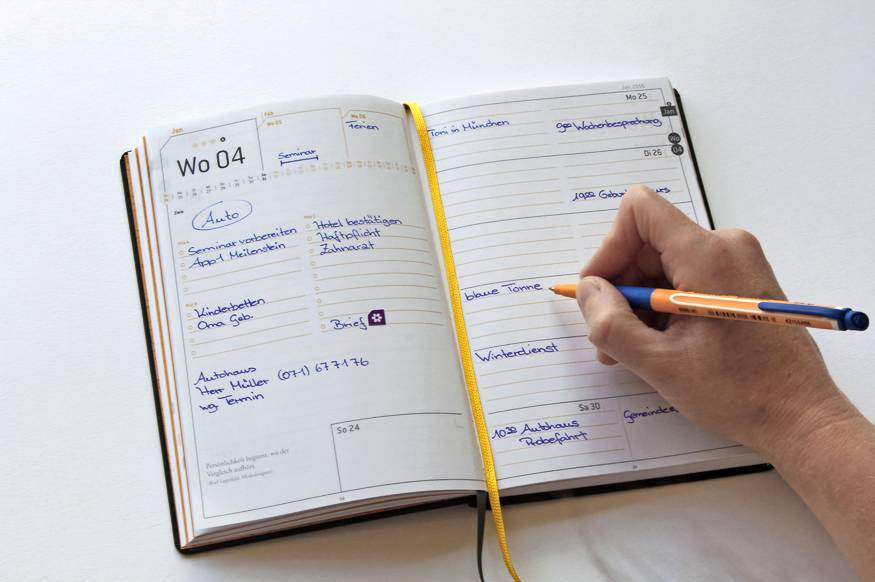 Jan
Feb
Wo 05
Wo 06
Ferien
Wo 04
Seminar
Auto
Seminar vorbereiten
App1 Meilenstein
Hotel bestätigen
Haftpflicht
Zahnarzt
Kinderbetten
Oma Geb.
Brief
Autohaus
Herr Müller (071) 677176
wg Termin
So 24
Persönlichkeit beginnt, wo der
Vergleich aufhört.
Jan 2016
Mo 25
Jan
Toni in München
9:00 Wochenbesprechung
Wo
04
Di 26
blaue Tonne
Winterdienst
Sa 30
10:30 Autohaus
Probefahrt